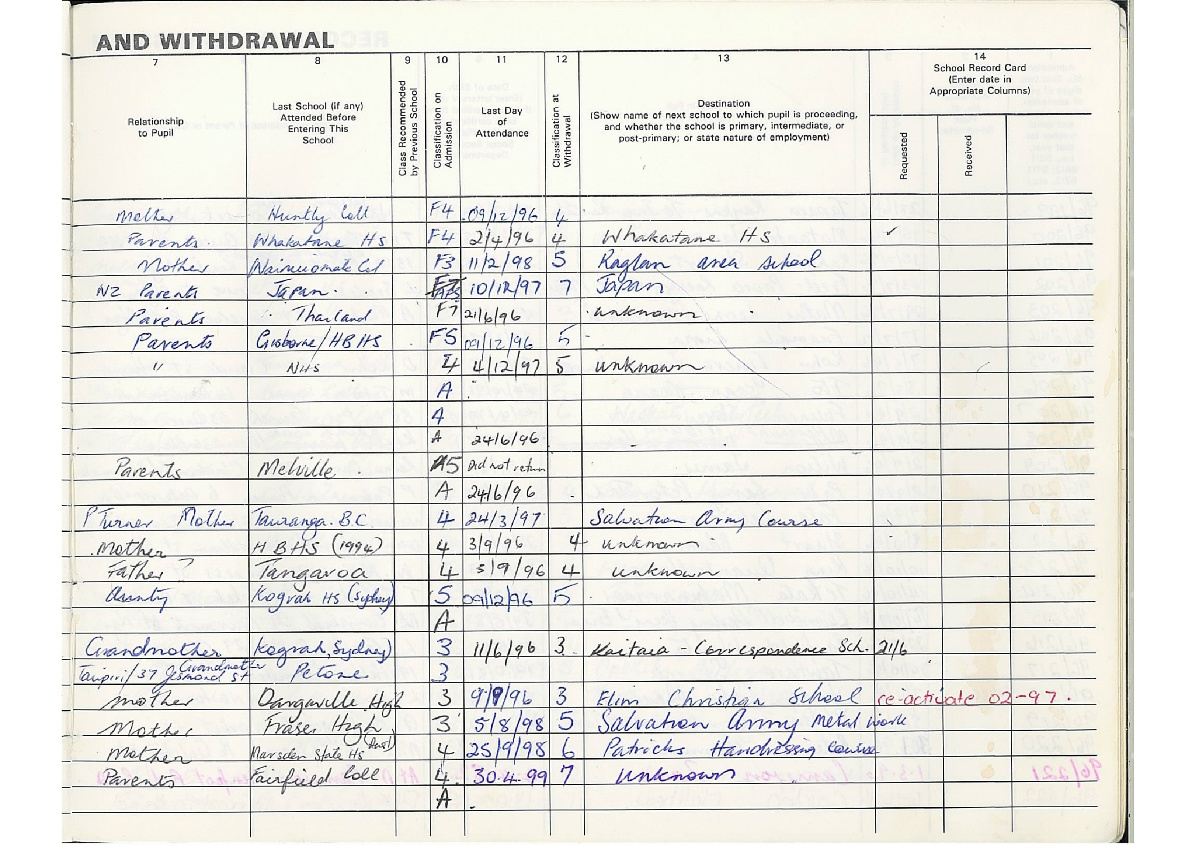 AND WITHDRAWAL
7 8 9 10 11 12 13 14
Relationship to Pupil
Last School (if any) Attended Before Entering This School
Class Recommended by Previous School
Classification on Admission
Last Day of Attendance
Classification at Withdrawal
Destination
(Show name of next school to which pupil is proceeding, and whether the school is primary, intermediate, or post-primary; or state nature of employment)
School Record Card (Enter date in Appropriate Columns)
Requested
Received
Mother Huntly Coll F4 09/12/96 4
Parents. Whakatane HS F4 2/4/96 4 Whakatane HS ✓
Mother Wainuiomata Col F3 11/2/98 5 Raglan area school
NZ Parents Japan. 10/12/97 7 Japan
Parents Thailand F7 21/6/96 unknown
Parents Gisborne/HBHS F5 09/12/96 5 -
" NHS 4 4/12/97 5 unknown
A
A
A 24/6/96
Parents Melville. A5 Did not return
A 24/6/96
P Turner Mother Tauranga. B.C. 4 24/3/97 Salvation Army Course
Mother HBHS (1994) 4 3/9/96 4 unknown
Father ? Tangaroa 4 3/9/96 4 unknown
Kograh HS (Sydney) 5 09/12/96 5
A
Grandmother Kograh, Sydney) 3 11/6/96 3 Kaitaia - Correspondence Sch. 21/6
Taupiri/37 Jesmond St Grandmother Petone 3
mother Dargaville High 3 9/8/96 3 Elim Christian School re-activate 02-97.
Mother Fraser High 3 5/8/98 5 Salvation Army Metal work
Mother Marsden State Hs (Aust) 4 25/9/98 6 Patricks Hairdressing Course
Parents Fairfield Coll 4 30.4.99 7 Unknown
A